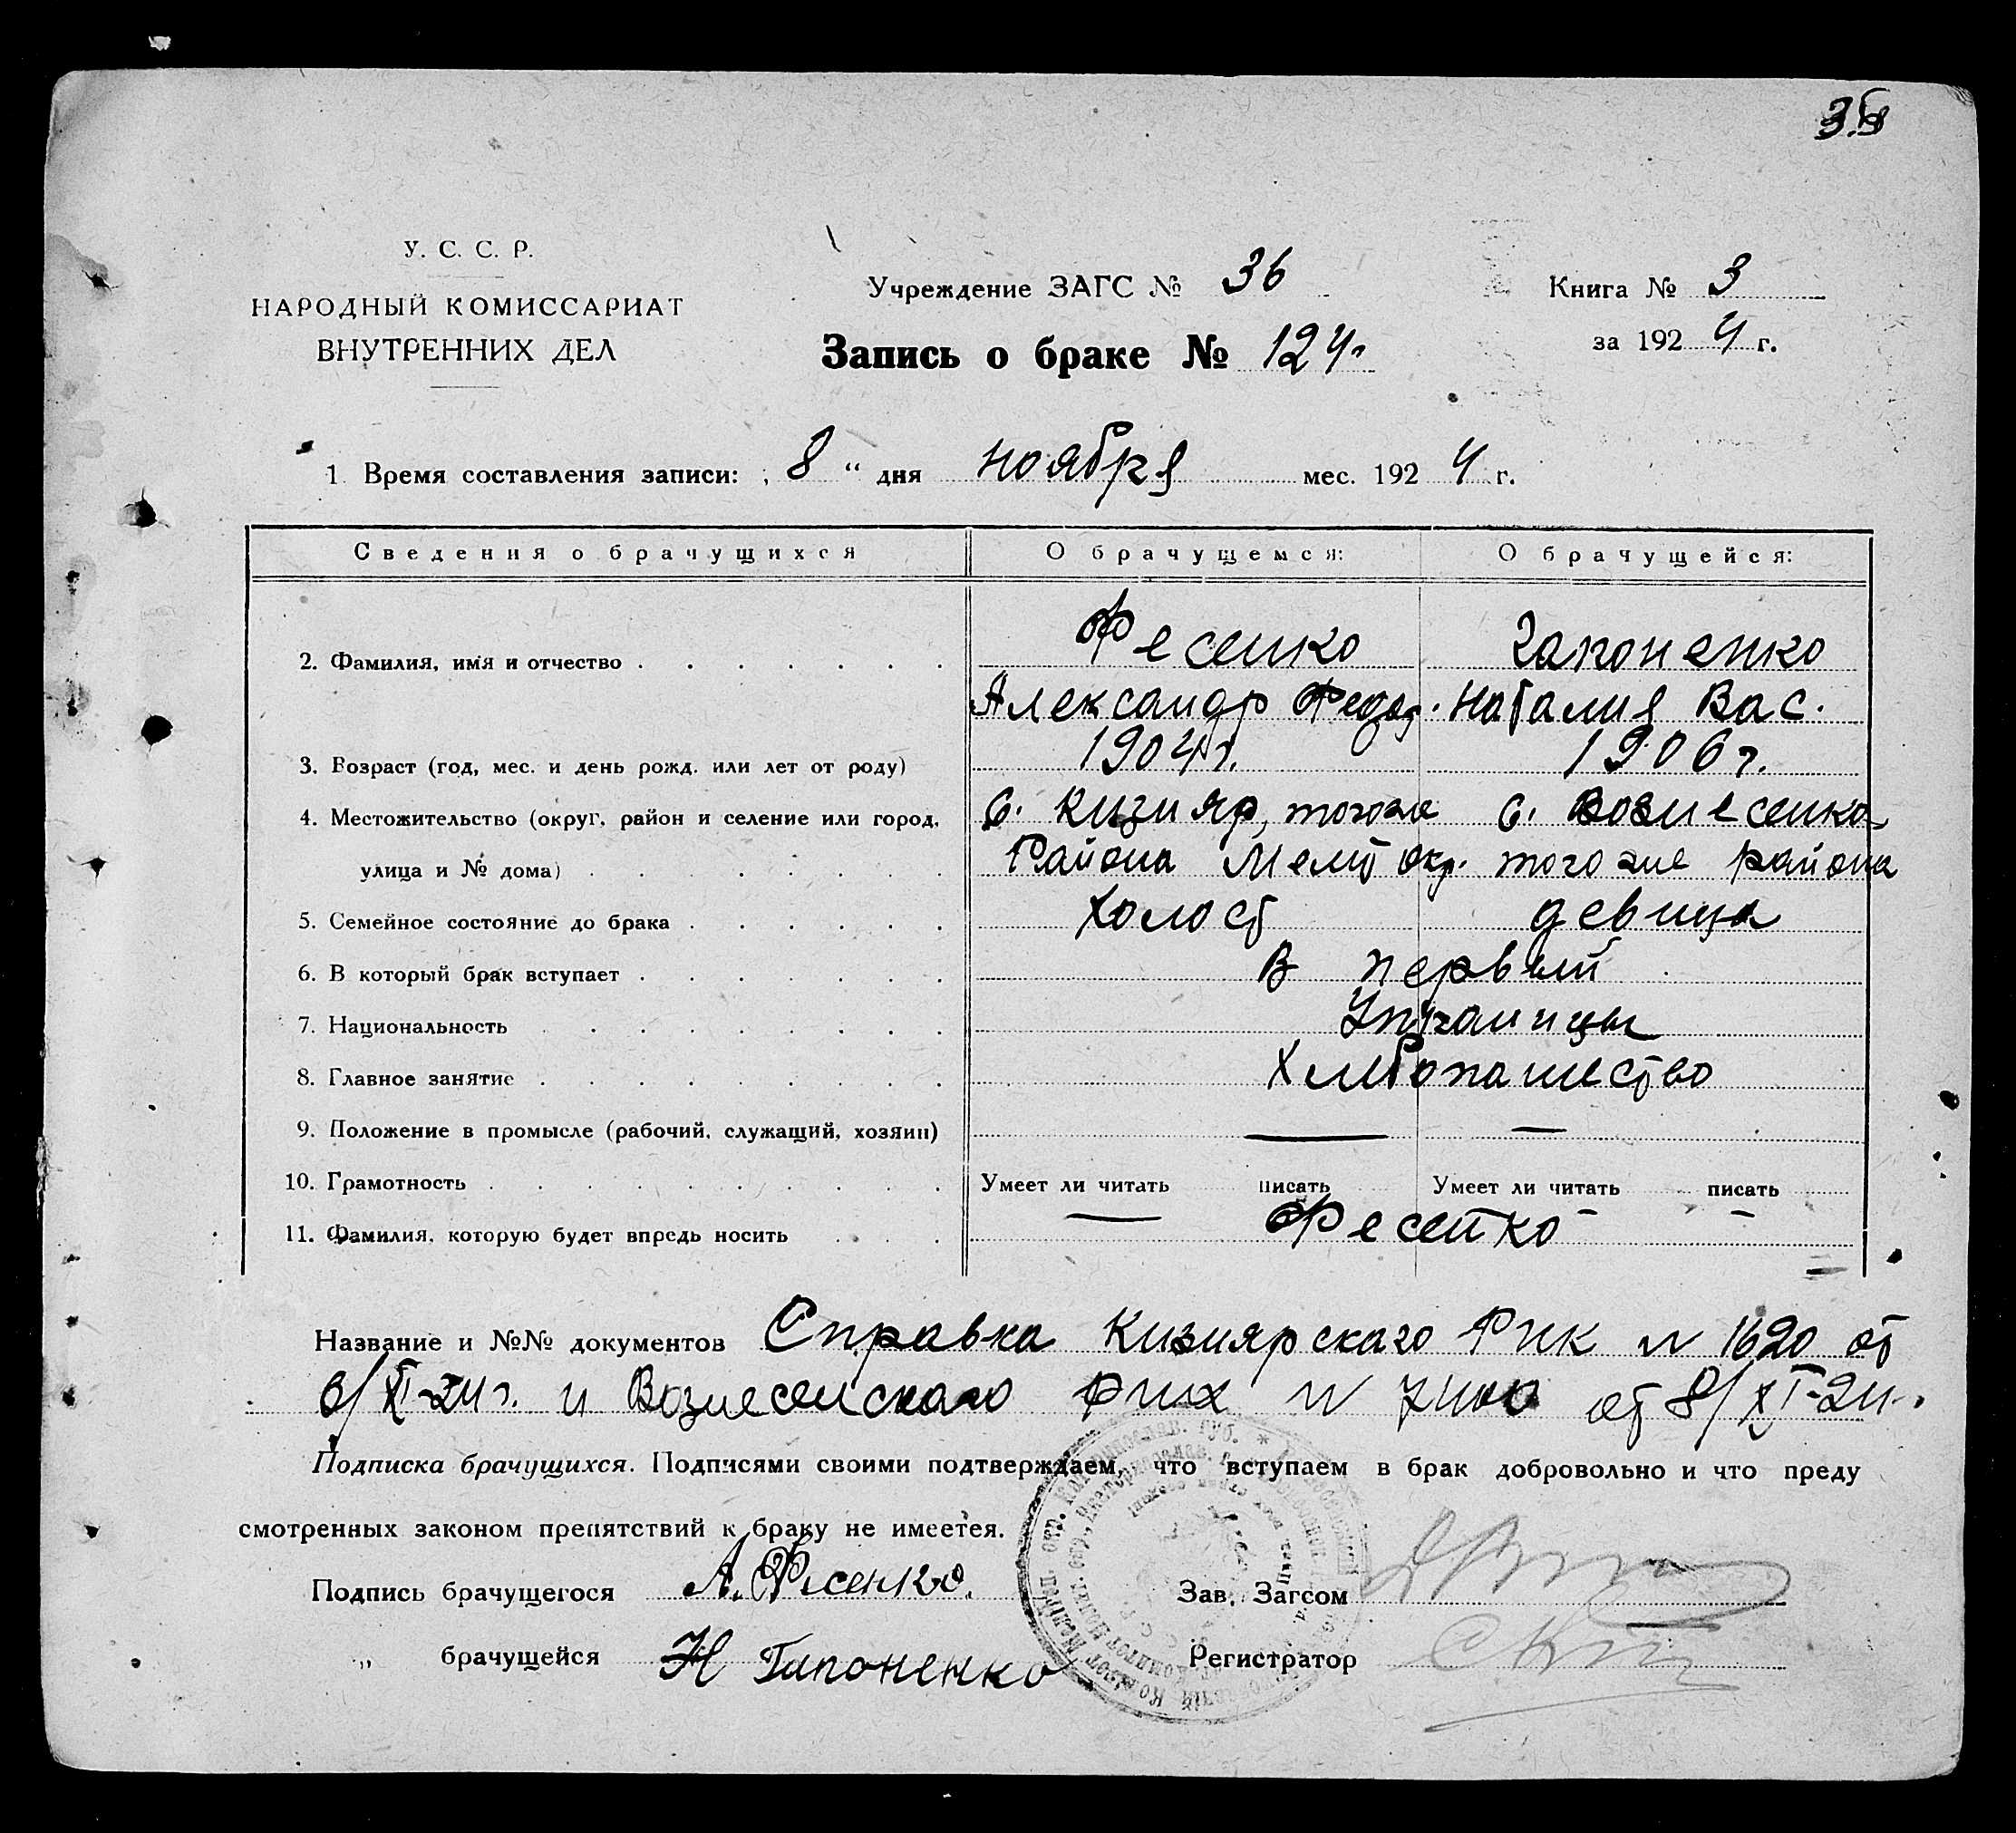 У. С. С. Р.
НАРОДНЫЙ КОМИССАРИАТ
ВНУТРЕННИХ ДЕЛ
Учреждение ЗАГС № 36
Запись о браке № 124
Книга № 3
за 1924 г.
1 Время составления записи: „ 8 “ дня ноября мес. 1924 г.
Сведения о брачущихся О брачущемся: О брачущейся:
2. Фамилия, имя и отчество Фесенко Гапоненко
Александр Федор. Наталия Вас.
3. Возраст (год, мес. и день рожд. или лет от роду) 1904 г. 1906 г.
4. Местожительство (округ, район и селение или город, с. Кизияр, тогоже с. Вознесенка
улица и № дома) Района Мелит окр. того же района
5. Семейное состояние до брака Холост девица
6. В который брак вступает В первый
7. Национальность Украинцы
8. Главное занятие Хлебопашество
9. Положение в промысле (рабочий, служащий, хозяин) — —
10. Грамотность Умеет ли читать писать Умеет ли читать писать
11. Фамилия, которую будет впредь носить Фесенко
Название и №№ документов Справка Кизиярскаго Рик № 1620 от
8/XI-24 г. и Вознесенскаго от 8/XI-24 г.
Подписка брачущихся. Подписями своими подтверждаем, что вступаем в брак добровольно и что преду
смотренных законом препятствий к браку не имеется.
Подпись брачущегося А. Фесенко. Зав. Загсом
„ брачущейся Н Гапоненко Регистратор